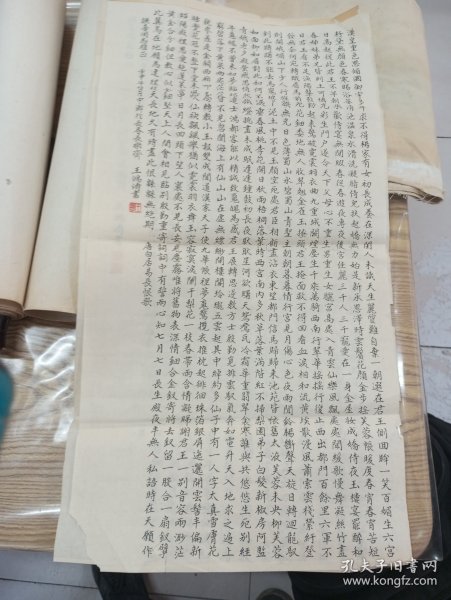 漢皇重色思傾國御宇多年求不得楊家有女初長成養在深閨人未識天生麗質難自棄一朝選在君王側回眸一笑百媚生六宮
粉黛無顏色春寒賜浴華清池溫泉水滑洗凝脂侍兒扶起嬌無力始是新承恩澤時雲鬢花顏金步搖芙蓉帳暖度春宵春宵苦短
日高起從此君王不早朝承歡侍宴無閒暇春從春遊夜專夜後宮佳麗三千人三千寵愛在一身金屋妝成嬌侍夜玉樓宴罷醉和
春姊妹弟兄皆列土可憐光彩生門戶遂令天下父母心不重生男重生女驪宮高處入青雲仙樂風飄處處聞緩歌慢舞凝絲竹盡
日君王看不足漁陽鼙鼓動地來驚破霓裳羽衣曲九重城闕煙塵生千乘萬騎西南行翠華搖搖行復止西出都門百餘里六軍不
發無奈何宛轉蛾眉馬前死花鈿委地無人收翠翹金雀玉搔頭君王掩面救不得回看血淚相和流黃埃散漫風蕭索雲棧縈紆登
劍閣峨嵋山下少人行旌旗無光日色薄蜀江水碧蜀山青聖主朝朝暮暮情行宮見月傷心色夜雨聞鈴腸斷聲天旋日轉迴龍馭
到此躊躇不能去馬嵬坡下泥土中不見玉顏空死處君臣相顧盡沾衣東望都門信馬歸歸來池苑皆依舊太液芙蓉未央柳芙蓉
如面柳如眉對此如何不淚垂春風桃李花開日秋雨梧桐葉落時西宮南內多秋草落葉滿階紅不掃梨園弟子白髮新椒房阿監
青娥老夕殿螢飛思悄然孤燈挑盡未成眠遲遲鐘鼓初長夜耿耿星河欲曙天鴛鴦瓦冷霜華重翡翠衾寒誰與共悠悠生死別經
年魂魄不曾來入夢臨邛道士鴻都客能以精誠致魂魄為感君王展轉思遂教方士殷勤覓排雲馭氣奔如電升天入地求之遍上
窮碧落下黃泉兩處茫茫皆不見忽聞海上有仙山山在虛無縹緲間樓閣玲瓏五雲起其中綽約多仙子中有一人字太真雪膚花
貌參差是金闕西廂叩玉扃轉教小玉報雙成聞道漢家天子使九華帳裡夢魂驚攬衣推枕起徘徊珠箔銀屏迤邐開雲鬢半偏新
睡覺花冠不整下堂來風吹仙袂飄颻舉猶似霓裳羽衣舞玉容寂寞淚闌干梨花一枝春帶雨含情凝睇謝君王一別音容兩渺茫
昭陽殿裡恩愛絕蓬萊宮中日月長回頭下望人寰處不見長安見塵霧唯將舊物表深情鈿合金釵寄將去釵留一股合一扇釵擘
黃金合分鈿但教心似金鈿堅天上人間會相見臨別殷勤重寄詞詞中有誓兩心知七月七日長生殿夜半無人私語時在天願作
比翼鳥在地願為連理枝天長地久有時盡此恨綿綿無絕期 唐白居易長恨歌
同志雅正 王鴻濤書
孔夫子旧书网
www.kongfz.com